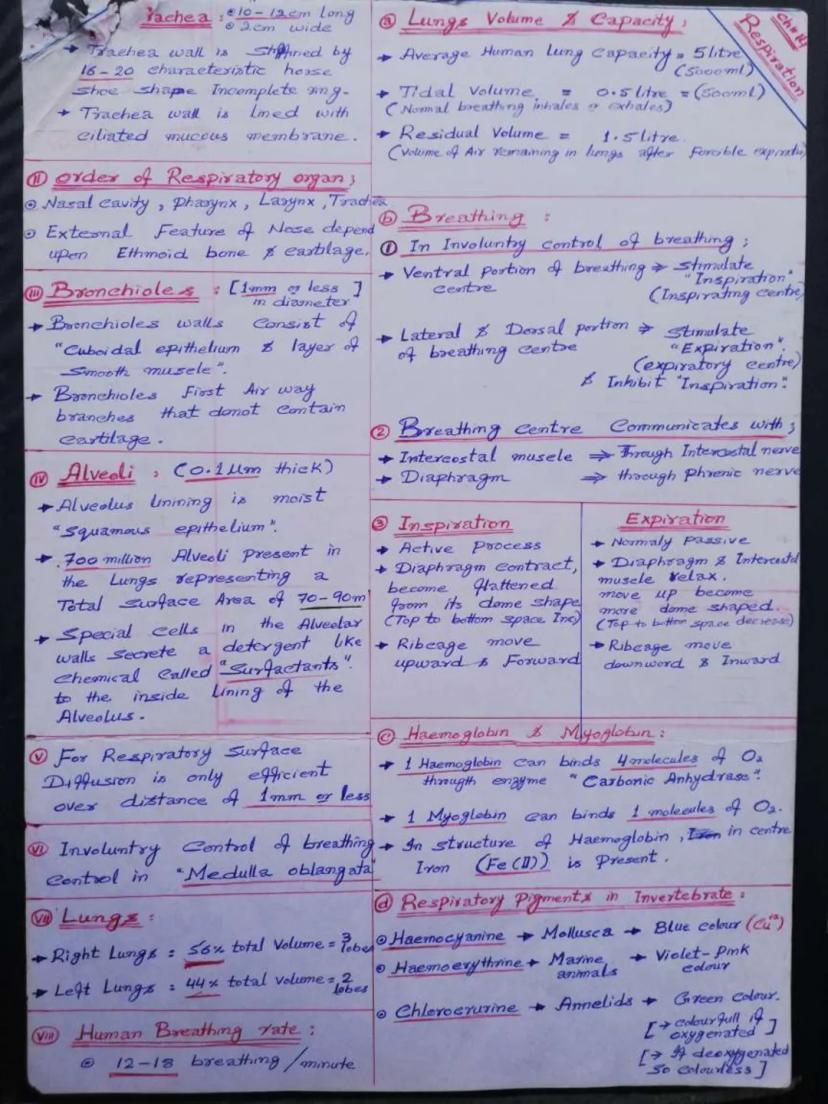 Trachea : ⊙10-12cm long
⊙ 2cm wide
→ Trachea wall is Shffined by
16-20 characteristic horse
Shoe shape Incomplete ring.
→ Trachea wall is lined with
ciliated mucous membrane.
(II) order of Respiratory organ ;
⊙ Nasal cavity , Pharynx , Larynx , Trachea
⊙ External Feature of Nose depend
upon Ethmoid bone & cartilage.
(III) Bronchioles : [1mm or less]
in diameter
→ Bronchioles walls consist of
"Cuboidal epithelium & layer of
Smooth muscle".
→ Bronchioles First Air way
branches that donot contain
cartilage .
(IV) Alveoli ; (0.1µm thick)
→ Alveolus linining is moist
"Squamous epithelium".
→ 700 million Alveoli present in
the Lungs representing a
Total surface Area of 70-90m
→ Special cells in the Alveolar
walls secrete a detergent like
chemical called "Surfactants".
to the inside Lining of the
Alveolus .
(V) For Respiratory Surface
Diffusion is only efficient
over distance of 1mm or less
(VI) Involuntry Control of breathing
Control in "Medulla oblangata"
(VII) Lungs :
→ Right Lungs : 56% total Volume = 3 lobes
→ Left Lungs : 44% total Volume = 2 lobes
(VIII) Human Breathing rate :
⊙ 12-18 breathing / minute
Ch# 14
Respiration
(a) Lungs Volume & Capacity ;
→ Average Human lung Capacity = 5 litre
(5000ml)
→ Tidal Volume = 0.5 litre = (500ml)
(Normal breathing inhales or exhales)
→ Residual Volume = 1.5 litre
(Volume of Air remaining in lungs after Forcible expiratio
(b) Breathing :
(1) In Involuntry control of breathing ;
→ Ventral portion of breathing ⇒ Stimulate
centre "Inspiration"
(Inspirating centre)
→ Lateral & Dorsal portion ⇒ Stimulate
of breathing centre "Expiration".
(expiratory centre)
& Inhibit "Inspiration".
(2) Breathing Centre Communicates with ;
→ Intercostal muscle ⇒ Through Intercostal nerve
→ Diaphragm ⇒ through Phrenic nerve
(3) Inspiration
→ Active Process
→ Diaphragm contract,
become flattened
from its dome shape
(Top to bottom space Inc)
→ Ribcage move
upward & Forward
Expiration
→ Normaly Passive
→ Diaphragm & Intercostal
muscle relax.
move up become
more dome shaped.
(Top to bottom space decrease)
→ Ribcage move
downword & Inward
(c) Haemoglobin & Myoglobin :
→ 1 Haemoglobin can binds 4 molecules of O₂
through enzyme "Carbonic Anhydrase".
→ 1 Myoglobin can binds 1 molecules of O₂.
→ In structure of Haemoglobin , Iron in centre
Iron (Fe(II)) is Present .
(d) Respiratory Pigments in Invertebrate :
⊙ Haemocyanine → Mollusca → Blue colour (Cu⁺²)
⊙ Haemoerythrine → Marine animals → Violet-Pink colour
⊙ Chlorocrurine → Annelids → Green colour.
[→ colourfull if
oxygenated]
[→ If deoxygenated
so colourless]